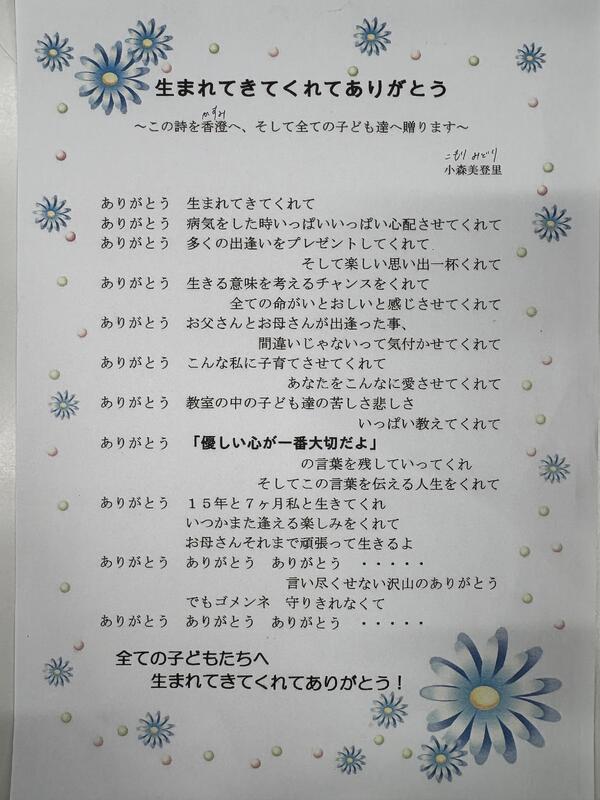 生まれてきてくれてありがとう
かすみ
～この詩を香澄へ、そして全ての子ども達へ贈ります～
こもり みどり
小森美登里
ありがとう 生まれてきてくれて
ありがとう 病気をした時いっぱいいっぱい心配させてくれて
ありがとう 多くの出逢いをプレゼントしてくれて
そして楽しい思い出一杯くれて
ありがとう 生きる意味を考えるチャンスをくれて
全ての命がいとおしいと感じさせてくれて
ありがとう お父さんとお母さんが出逢った事、
間違いじゃないって気付かせてくれて
ありがとう こんな私に子育てさせてくれて
あなたをこんなに愛させてくれて
ありがとう 教室の中の子ども達の苦しさ悲しさ
いっぱい教えてくれて
ありがとう 「優しい心が一番大切だよ」
の言葉を残していってくれ
そしてこの言葉を伝える人生をくれて
ありがとう １５年と７ヶ月私と生きてくれ
いつかまた逢える楽しみをくれて
お母さんそれまで頑張って生きるよ
ありがとう ありがとう ありがとう ・・・・・
言い尽くせない沢山のありがとう
でもゴメンネ 守りきれなくて
ありがとう ありがとう ありがとう ・・・・・
全ての子どもたちへ
生まれてきてくれてありがとう！